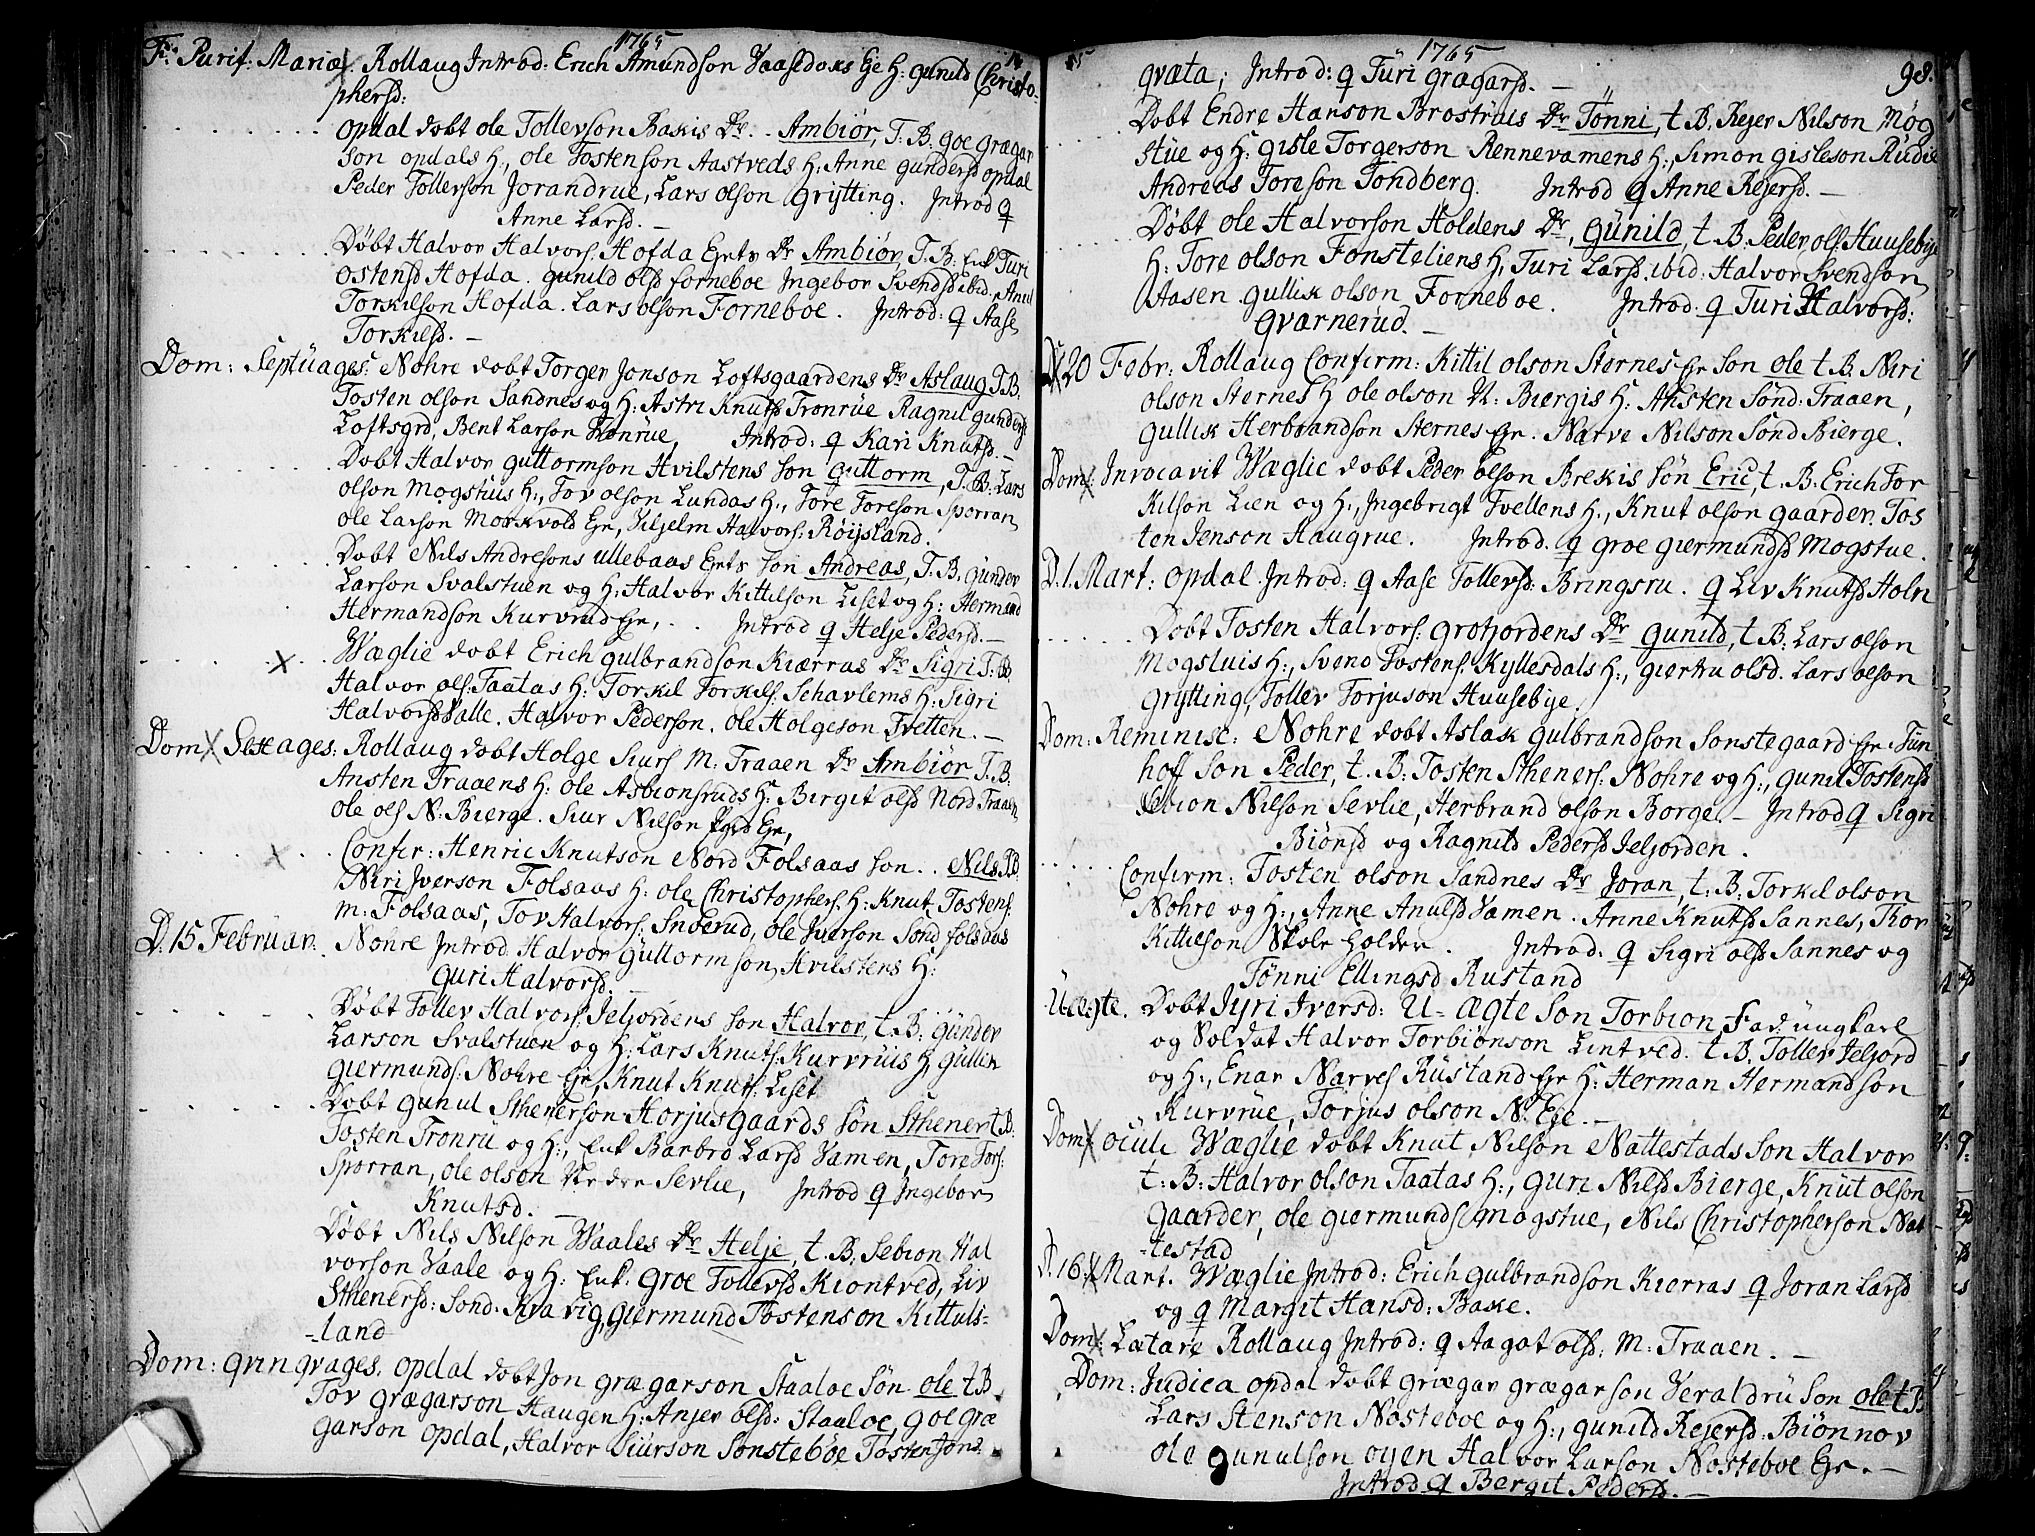 1765
F: Purif: Mariæ. Rollaug Introd: Erich Amundson Vaasedals Eje H: Gunild Christo-
phersd:
Opdal dobt Ole Tollevson Bakis Dr. Ambiør, T. B: Goe Græгar
son Opdals H., Ole Tostenson Aastveds H: Anne Gundersd Opdal
Peder Tollefson Jorandrue, Lars Olson Grijtting. Introd Q
Anne Larsd. —
Døbt Halvor Halvors: Hofda Egntv Dr Ambiør T. B: Enk Turi
Ostensd Hofda. Gunild Olsd Forneboe Ingebor Svendsd ibid. Anul
Torkilson Hofda. Lars Olson Forneboe. Introd: Q Aase
Torkilsd. —
Dom: Septuages: Nohre dobt Torger Jonson Loftsgaardens Dr Aslaug T.B.
Tosten Olson Sandnes og H: Astri Knutsd Tronrüe Ragnil Gunders
Loftsgrd, Bent Larson Tronrue, Introd: Q Kari Knutsd. —
Dobt Halvor Guttormson Hvilstens Son Guttorm, T. B: Lars
Olson Mogstuis H:, Tov Olson Lundas H:, Tore Toreson Sporran,
Ole Larson Morkvold Egr, Viljelm Halvors: Röijsland.
Dobt Nils Andresons Ullebaas Egntv Sön Andreas, T. B. Gunder
Larson Svalstuen og H: Halvor Kittilson Liset og H: Hermand
Hermandson Kurvrud Egr, . Introd Q Helje Pedersd. —
Wæglie dobt Erich Gulbrandson Kiærras Dr Sigri T: B.
Halvor Ols: Taatas H: Torkil Torkils. Schavlems H: Sigri
Halvorsd Valle. Halvor Pederson. Ole Holgeson Tvetten. —
Dom: Sexages: Rollaug dobt Holge Siurs M: Traaen Dr Ambiör T. B:
Ansten Traaens H: Ole Asbionsruds H: Birgit Olsd Nord Traaen,
Ole Ols N: Bierge. Siur Nilson Egr,
Confir: Henric Knutson Nord Folsaas Son . . Nils T.B:
Niri Iverson Folsaas H: Ole Christophers. H: Knut Tostens:
m: Folsaas, Tov Halvors: Snöerud, Ole Iverson Sond Folsaas
D. 15 Februar. Nohre Introd Halvor Guttormson, Hvilstens H:
Guri Halvorsd. —
Döbt Tollev Halvors: Jeljordens Son Halvor, t. B: Günder
Larson Svalstuen og H: Lars Knuts: Kurvrüis H, Gullen
Giermunds: Nohre Egr, Knut Knuts: Liset
Dobt Gunul Sthenerson Horjusgaards Sön Sthener t.B:
Tosten Tronrü og H:, Enk Barbro Larsd Vamen, Tore Tors:
Sporran, Ole Olson Neder Sevlie, Introd Q Ingebor
Knutsd. —
Döbt Nils Nilson Waales Dr Helje, t. B: Sebion Hal
vorson Vaale og H: Enk. Groe Tollevsd Kiontved, Liv
Sthenersd: Sond: Kravig, Giermund Tostenson Kittuls-
-land
Dom: Qvinqvages. Opdal dobt Jon Grægarson Staaloe Sön Ole t B
Tov Grægarson Haugen H: Anjer Olsd: Staaloe, Goe Græ
garson Opdal, Halvor Siurson Sönsteböe Tosten Jons.
1765
98.
Qvæta; Introd: Q Turi Grægarsd. —
Dobt Endre Hanson Brostruis Dr Tönni, t. B. Rejer Nilson Mög
stue og H: Gisle Torgerson Rennevamens H:, Simon Gisleson Rudie
Andreas Toreson Tondberg. Introd Q Anne Rejersd. —
Døbt Ole Halvorson Holdens Dr, Günild, t. B. Peder Ols: Huusebye
H: Tore Olson Fönsteliens H, Turi Larsd. ibid: Halvor Svendson
Aasen Gullik Olson Forneboe. Introd: Q Turi Halvorsd:
Qværnerud. —
D. 20 Febr: Rollaug Confirm: Kittil Olson Sternes Egr Son Ole t B. Niri
Olson Sternes H Ole Olson N: Biergis H: Ansten Sönd: Traaen,
Gullik Herbrandson Sternes Egr. Narve Nilson Sönd Bierge.
Dom: Invocavit Wæglie dobt Peder Olson Brekis Sön Eric, t. B. Erich Tor
kilson Lien og H:, Ingebrigt Tvellens H:, Knut Olson Gaarder. Tos
ten Jenson Haugrue. Introd. Q Groe Giermundsd Mogstue.
D. 1. Mart: Opdal. Introd: Q Aase Tollevsd: Bringsru. Q Liv Knutsd Holn
Dobt Tosten Halvors: Grotjordens Dr Gunild, t. B: Lars Olson
Mogstuis H:, Sveno Tostens: Kyllesdals H:, Giertru Olsd. Lars Olson
Grijtting, Tollev Torjuson Huusebye.
Dom: Reminisc: Nohre dobt Aslak Gulbrandson Sonstegaard Egr Tun
hoff Son Peder, t. B: Tosten Stheners: Nohre og H:, Gunil Tostensd
Sebion Nilson Sevlie, Herbrand Olson Borge. — Introd Q Sigri
Biönsd og Ragnild Pedersd Jeljorden.
Confirm: Tosten Olson Sandnes Dr Joran, t. B: Torkil Olson
Nohre og H:, Anne Anulsd Vamen. Anne Knutsd Sannes, Thor
Kittilson Skoleholder. Introd: Q Sigri Olsd Sannes og
Tönni Ellingsd Rustand
U-ægte. Dobt Jyri Iversd: U-Ægte Son Torbion, Fad: ungkarl
og Soldat Halvor Torbiönson Lintved. t. B. Tollev Jeljord
og H:, Enar Narves Rüstand Egr H: Herman Hermandson
Kurvrüe, Torjus Olson N: Eje. —
Dom: Oculi Wæglie dobt Knut Nilson Nattestads Son Halvor
t: B: Halvor Olson Taatas H:, Guri Nilsd Bierge, Knut Olson
Gaarder, Ole Giermunds: Mogstue, Nils Christopherson Nat
-testad
D. 16: Mart. Wæglie Introd: Erich Gulbrandson Kierras Q Joran Larsd
og Q Margit Hansd: Bake.
Dom: Lætare Rollaug Introd: Q Aagot Olsd: M: Traaen. —
Dom: Judica Opdal dobt Grægar Grægarson Veraldrü Son Ole t B
Lars Stenson Nösteboe og H:, Gunild Rejersd: Biönnov
Ole Gunulson Oyen Halvor Larson Nösteboe Egr. —
Introd Q Bergit Pedersd. —